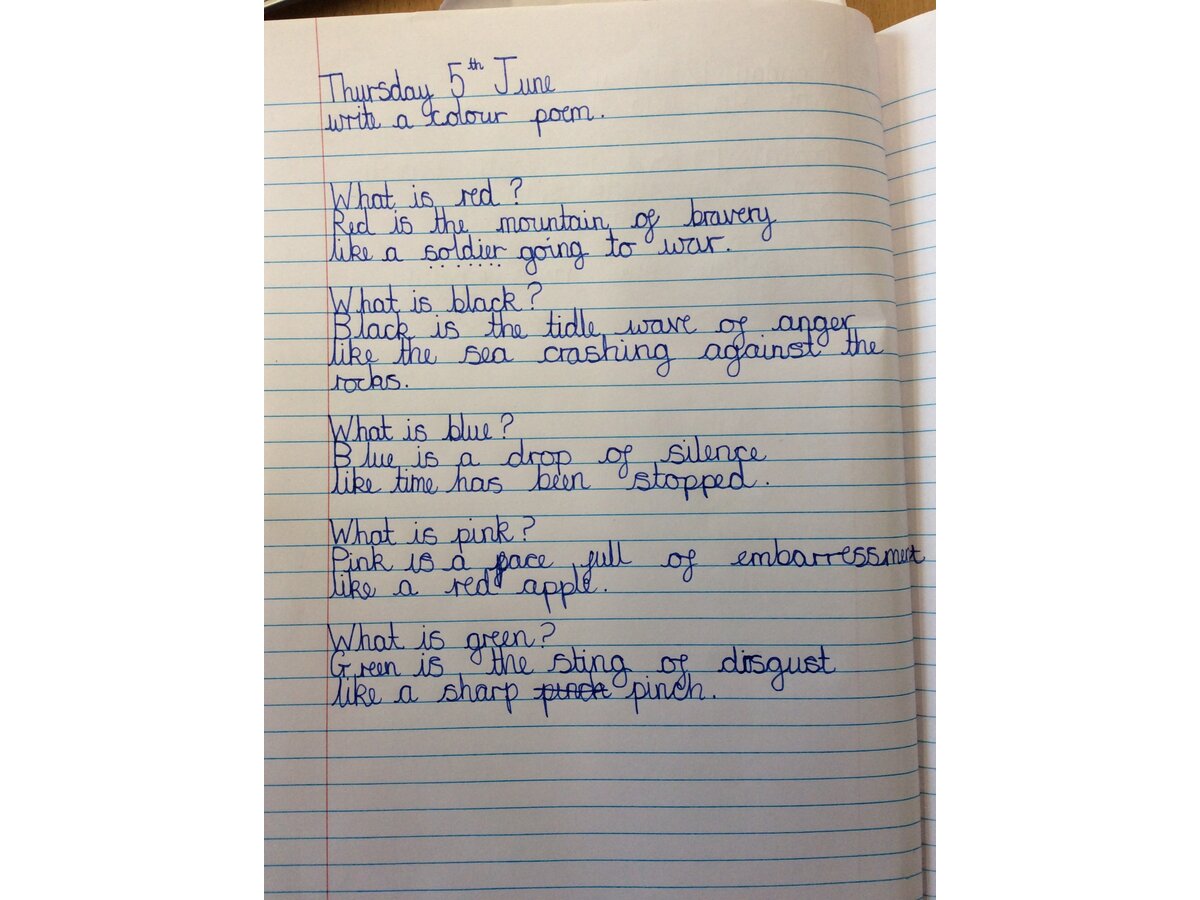 Thursday 5th June
write a colour poem.
What is red?
Red is the mountain of bravery
like a soldier going to war.
What is black?
Black is the tidle wave of anger
like the sea crashing against the
rocks.
What is blue?
Blue is a drop of silence
like time has been stopped.
What is pink?
Pink is a face full of embarressment
like a red apple.
What is green?
Green is the sting of disgust
like a sharp pinch pinch.